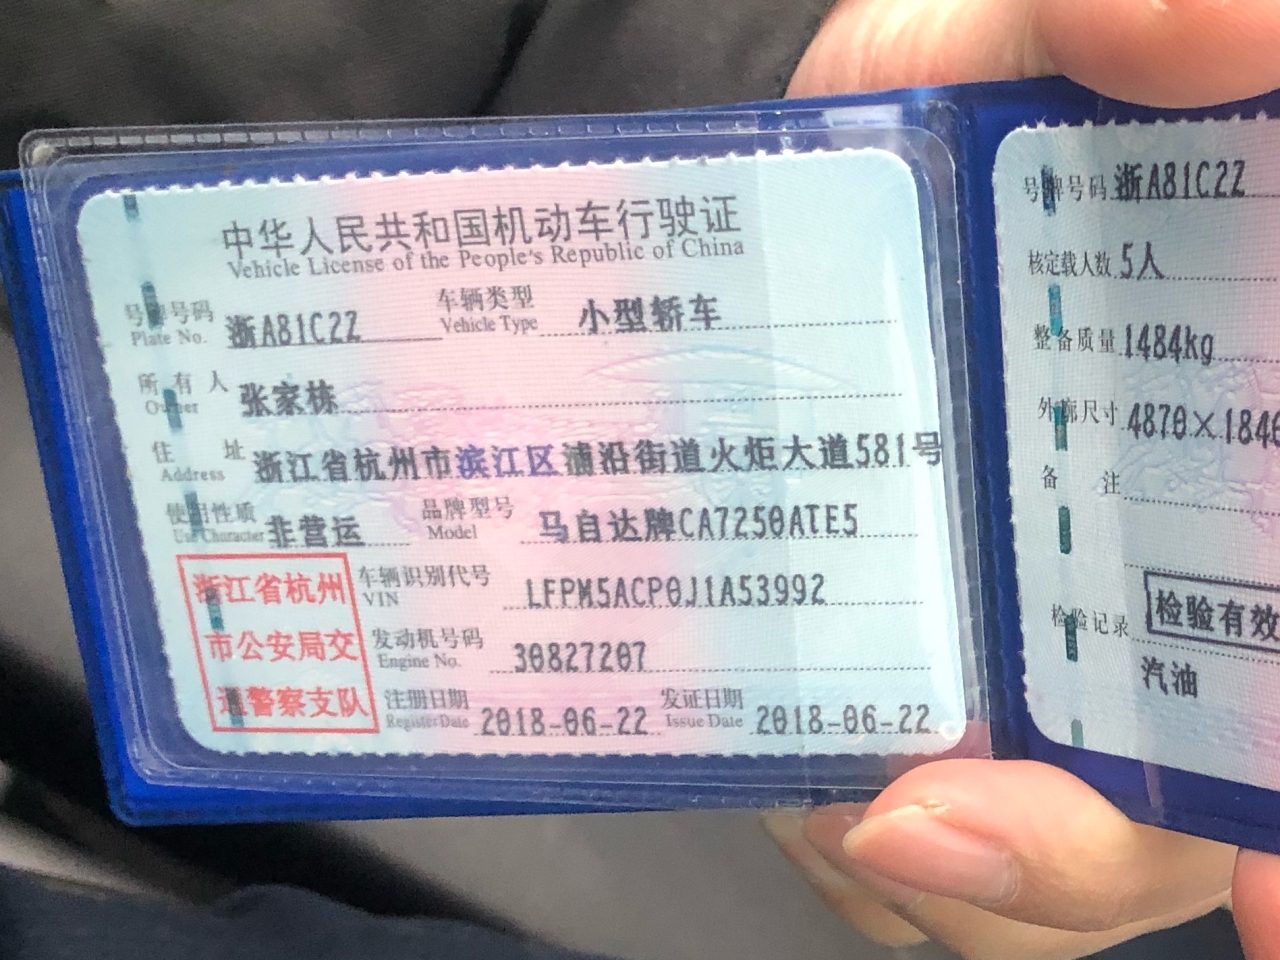 中华人民共和国机动车行驶证
Vehicle License of the People's Republic of China
号牌号码 浙A81C2Z 车辆类型 小型轿车
Plate No. Vehicle Type
所有人 张家栋
Owner
住址 浙江省杭州市滨江区浦沿街道火炬大道581号
Address
使用性质 非营运 品牌型号 马自达牌CA7250ATE5
Use Character Model
浙江省杭州
市公安局交
通警察支队
车辆识别代号 LFPM5ACP0J1A53992
VIN
发动机号码 30827207
Engine No.
注册日期 2018-06-22 发证日期 2018-06-22
Register Date Issue Date
号牌号码 浙A81C2Z
核定载人数 5人
整备质量 1484kg
外廓尺寸 4870×1846
备注
检验记录 检验有效
汽油